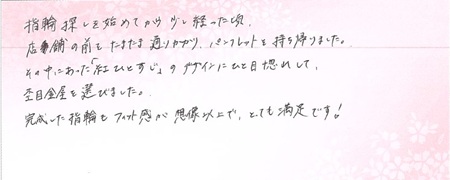 指輪探しを始めてから少し経った頃、
店舗の前をたまたま通りかかり、パンフレットを持ち帰りました。
その中にあった「紅ひとすじ」のデザインにひと目惚れして、
杢目金屋を選びました。
完成した指輪もフィット感が想像以上で、とても満足です!